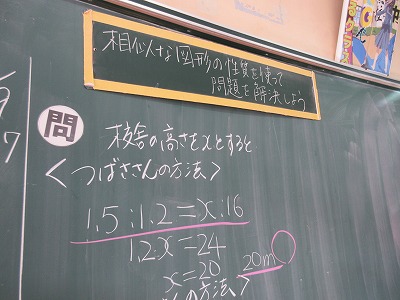 相似な図形の性質を使って
問題を解決しよう
問
校舎の高さをxとすると
<つばささんの方法>
1.5:1.2=x:16
1.2x=24
x=20 20m
さんの方法>